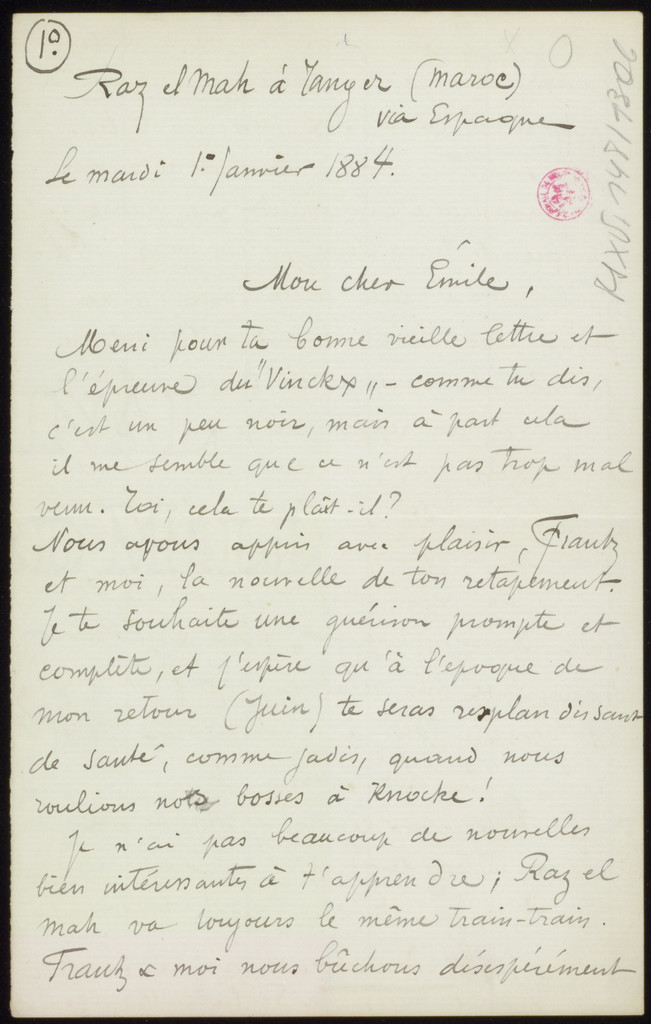 1º
Raz el Mah à Tanger (Maroc)
via Espagne
Le mardi 1º Janvier 1884.
Mon cher Émile,
Merci pour ta bonne vieille lettre et
l'épreuve du "Vinckx„ - comme tu dis,
c'est un peu noir, mais à part cela
il me semble que ce n'est pas trop mal
venu. Toi, cela te plaît-il?
Nous avons appris avec plaisir, Frantz
et moi, la nouvelle de ton retapement.
Je te souhaite une guérison prompte et
complète, et j'espère qu'à l'époque de
mon retour (Juin) te seras resplandissant
de santé, comme jadis, quand nous
roulions nos bosses à Knocke!
Je n'ai pas beaucoup de nouvelles
bien intéressantes à t'apprendre; Raz el
Mah va toujours le même train-train.
Frantz & moi nous bûchons désespérément